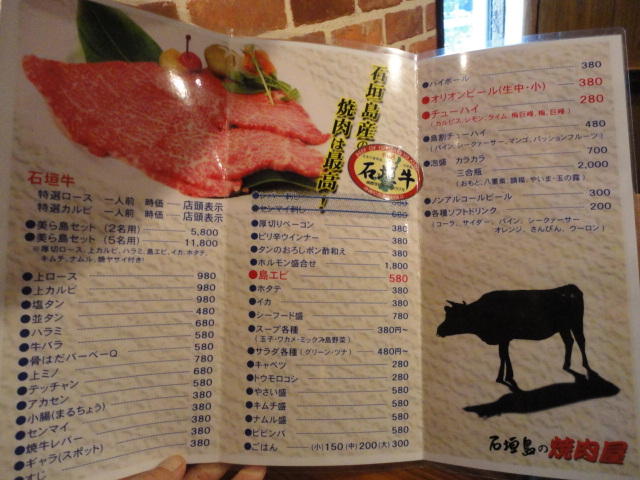 石垣島産の
焼肉は最高!
石垣牛
石垣牛
特選ロース 一人前 時価 店頭表示
特選カルビ 一人前 時価 店頭表示
●美ら島セット(2名用) 5,800
●美ら島セット(5名用) 11,800
※厚切ロース、上カルビ、ハラミ、島エビ、イカ、ホタテ、
キムチ、ナムル、焼ヤサイ付き!
●上ロース 980
●上カルビ 980
●塩タン 980
●並タン 480
●ハラミ 680
●牛バラ 580
●骨はだバーベーQ 580
●上ミノ 780
●テッチャン 680
●アカセン 580
●小腸(まるちょう) 380
●センマイ 380
●焼牛レバー 380
●ギャラ(スポット) 380
●すじ
●レバー刺し
●センマイ刺し 680
●厚切りベーコン 380
●ピリ辛ウインナー 380
●タンのおろしポン酢和え 380
●ホルモン盛合せ 1,800
●島エビ 580
●ホタテ 380
●イカ 380
●シーフード盛 780
●スープ各種 380円~
(玉子・ワカメ・ミックス・島野菜)
●サラダ各種(グリーン・ツナ) 480円~
●キャベツ 280
●トウモロコシ 280
●やさい盛 580
●キムチ盛 580
●ナムル盛 580
●ビビンバ 580
●ごはん (小)150(中)200(大)300
●ハイボール 380
●オリオンビール(生中・小) 380
●チューハイ 280
(カルピス、レモン、ライム、梅巨峰、梅、巨峰)
●島割チューハイ 480
(パイン、シークァーサー、マンゴ、パッションフルーツ)
●泡盛 カラカラ 700
三合瓶 2,000
(おもと、八重泉、請福、やいま・玉の露)
●ノンアルコールビール 300
●各種ソフトドリンク 200
(コーラ、サイダー、パイン、シークァーサー
オレンジ、さんぴん、ウーロン)
石垣島の焼肉屋